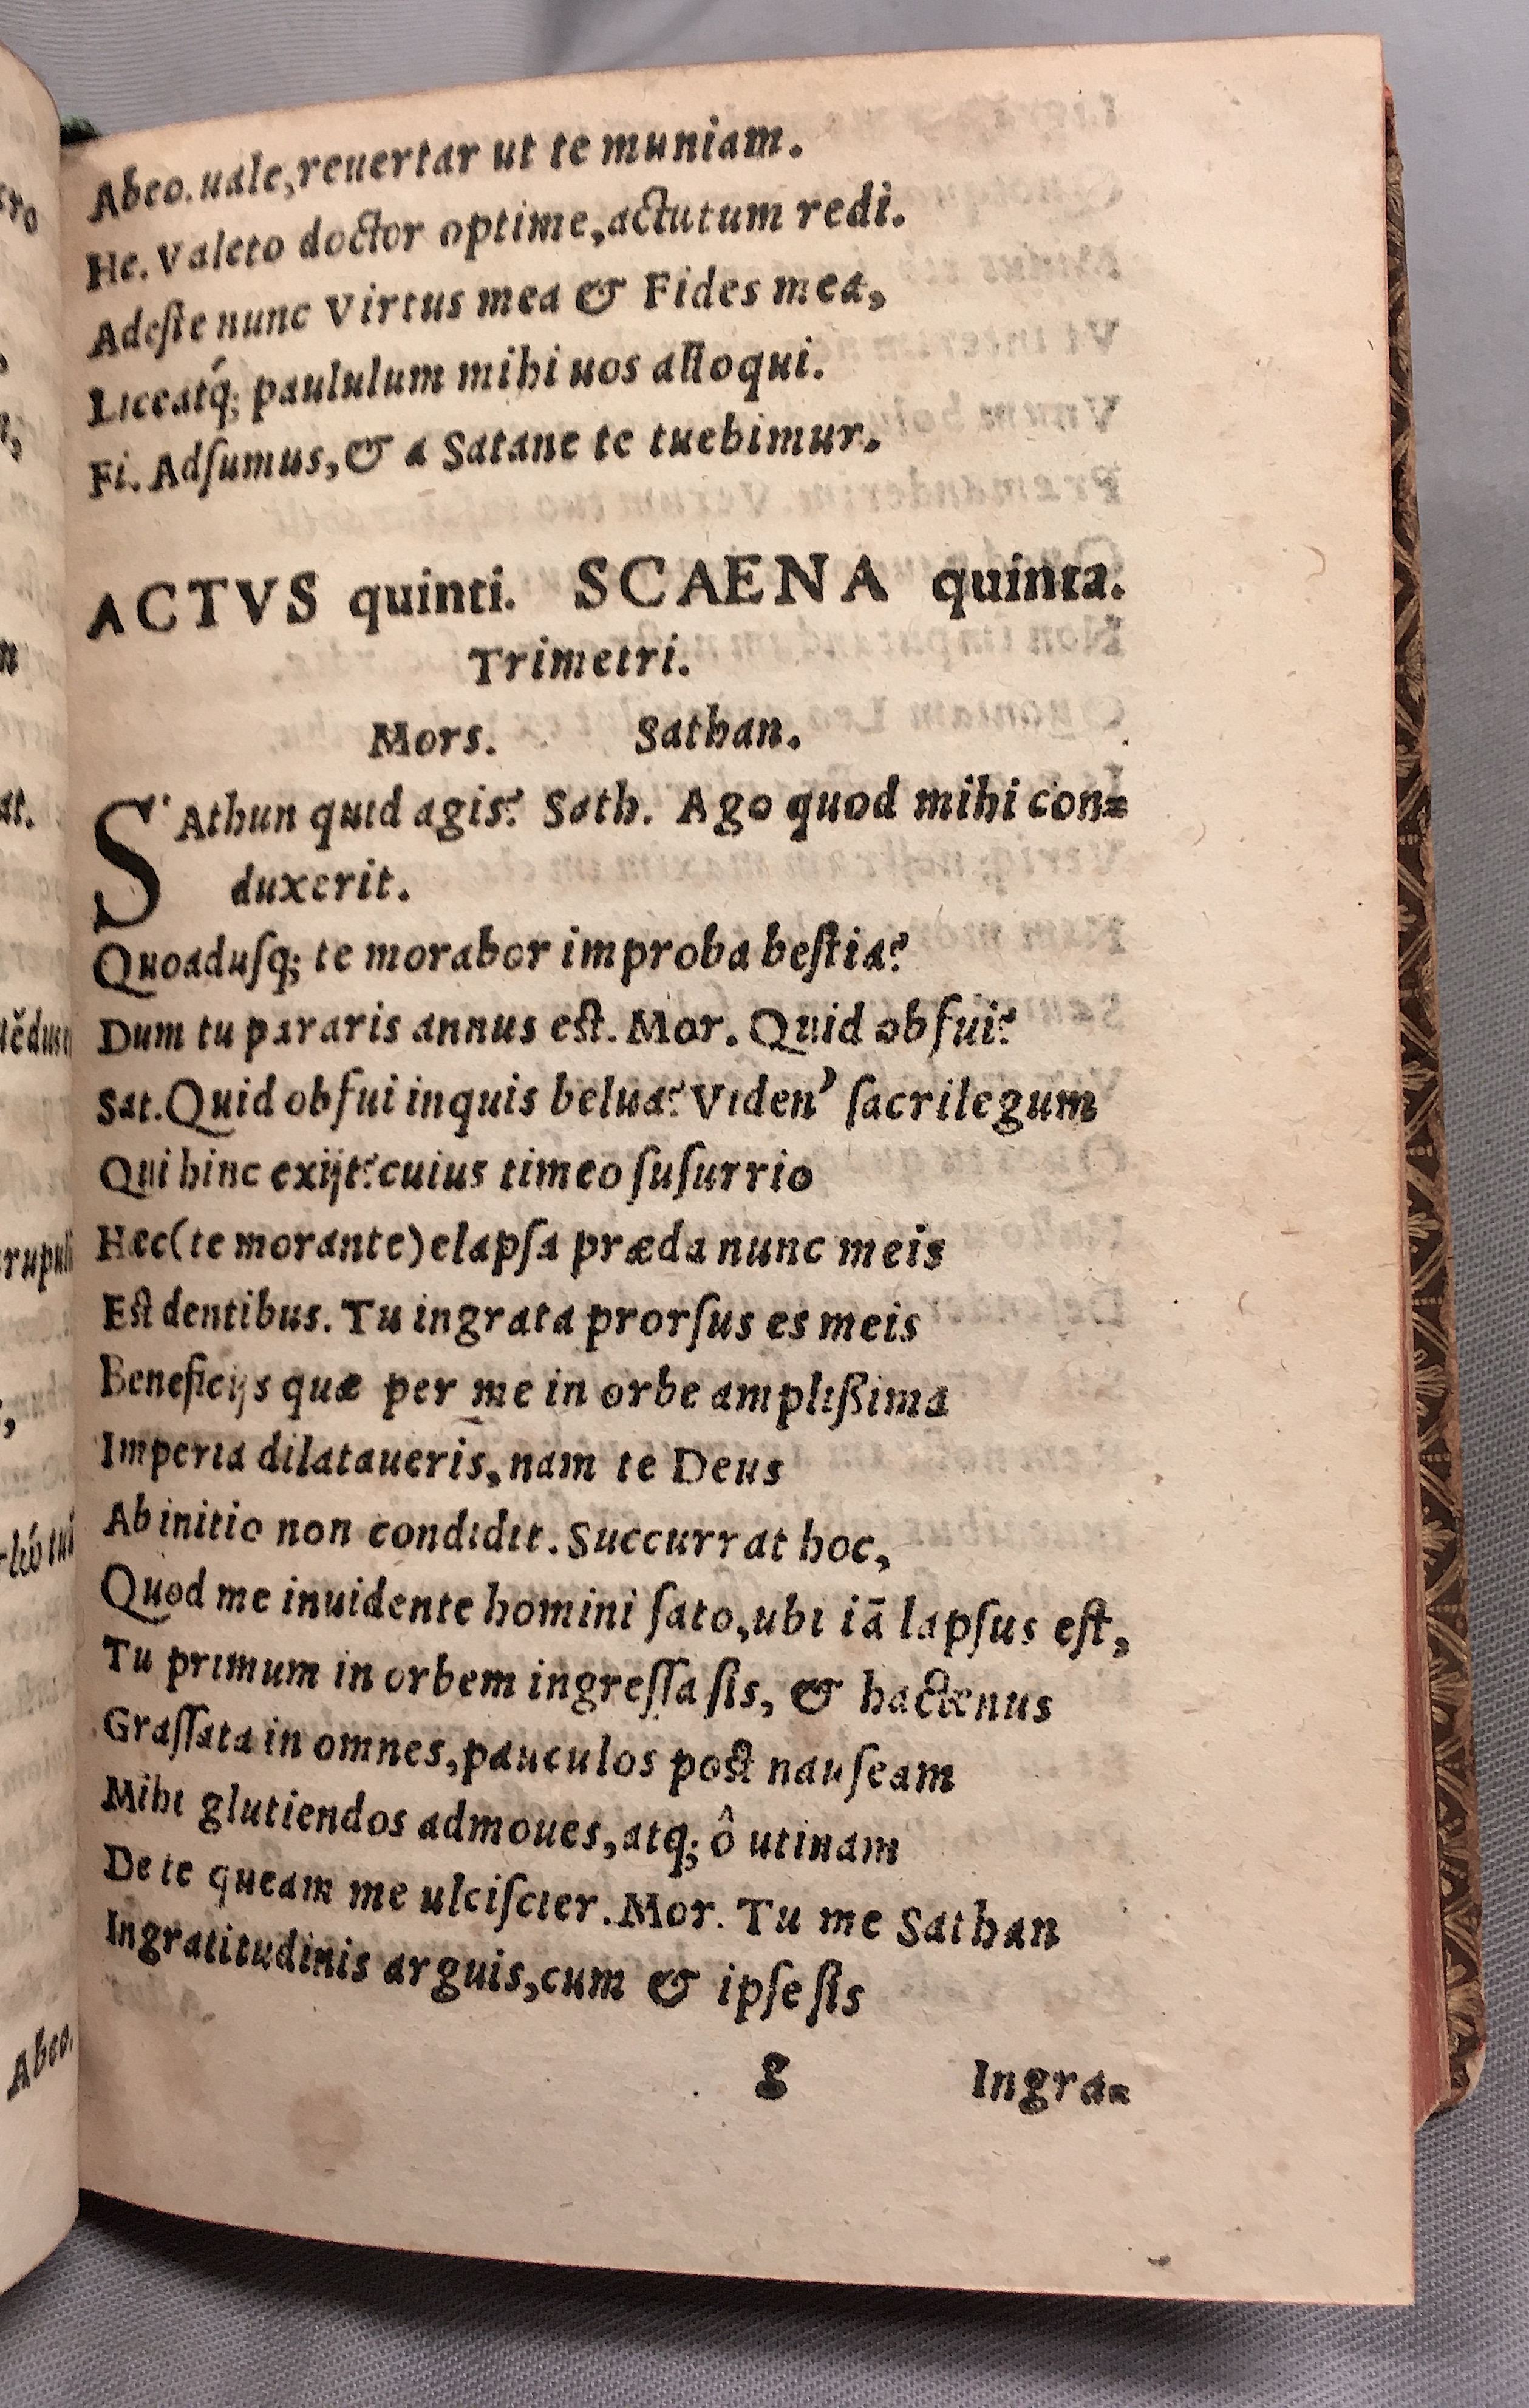 Abeo. uale, reuertar ut te muniam.
He. Valeto doctor optime, actutum redi.
Adeſte nunc Virtus mea & Fides mea,
Liceatq́; paululum mihi uos alloqui.
Fi. Adſumus, & a Satane te tuebimur.
ACTVS quinti. SCAENA quinta.
Trimetri.
Mors. Sathan.
SAthan quid agis? Sath. Ago quod mihi con=
duxerit.
Quoaduſq; te morabor improba beſtia?
Dum tu pararis annus eſt. Mor. Quid obfui?
Sat. Quid obfui inquis belua? Viden' ſacrilegum
Qui hinc exijt? cuius timeo ſuſurrio
Hæc (te morante) elapſa præda nunc meis
Eſt dentibus. Tu ingrata prorſus es meis
Beneficijs quæ per me in orbe ampliſſima
Imperia dilataueris, nam te Deus
Ab initio non condidit. Succurrat hoc,
Quod me inuidente homini ſato, ubi iā lapſus eſt,
Tu primum in orbem ingreſſa ſis, & hactenus
Graſſata in omnes, pauculos poſt nauſeam
Mihi glutiendos admoues, atq; ô utinam
De te queam me ulciſcier. Mor. Tu me Sathan
Ingratitudinis arguis, cum & ipſe ſis
g Ingra=
Abeo.